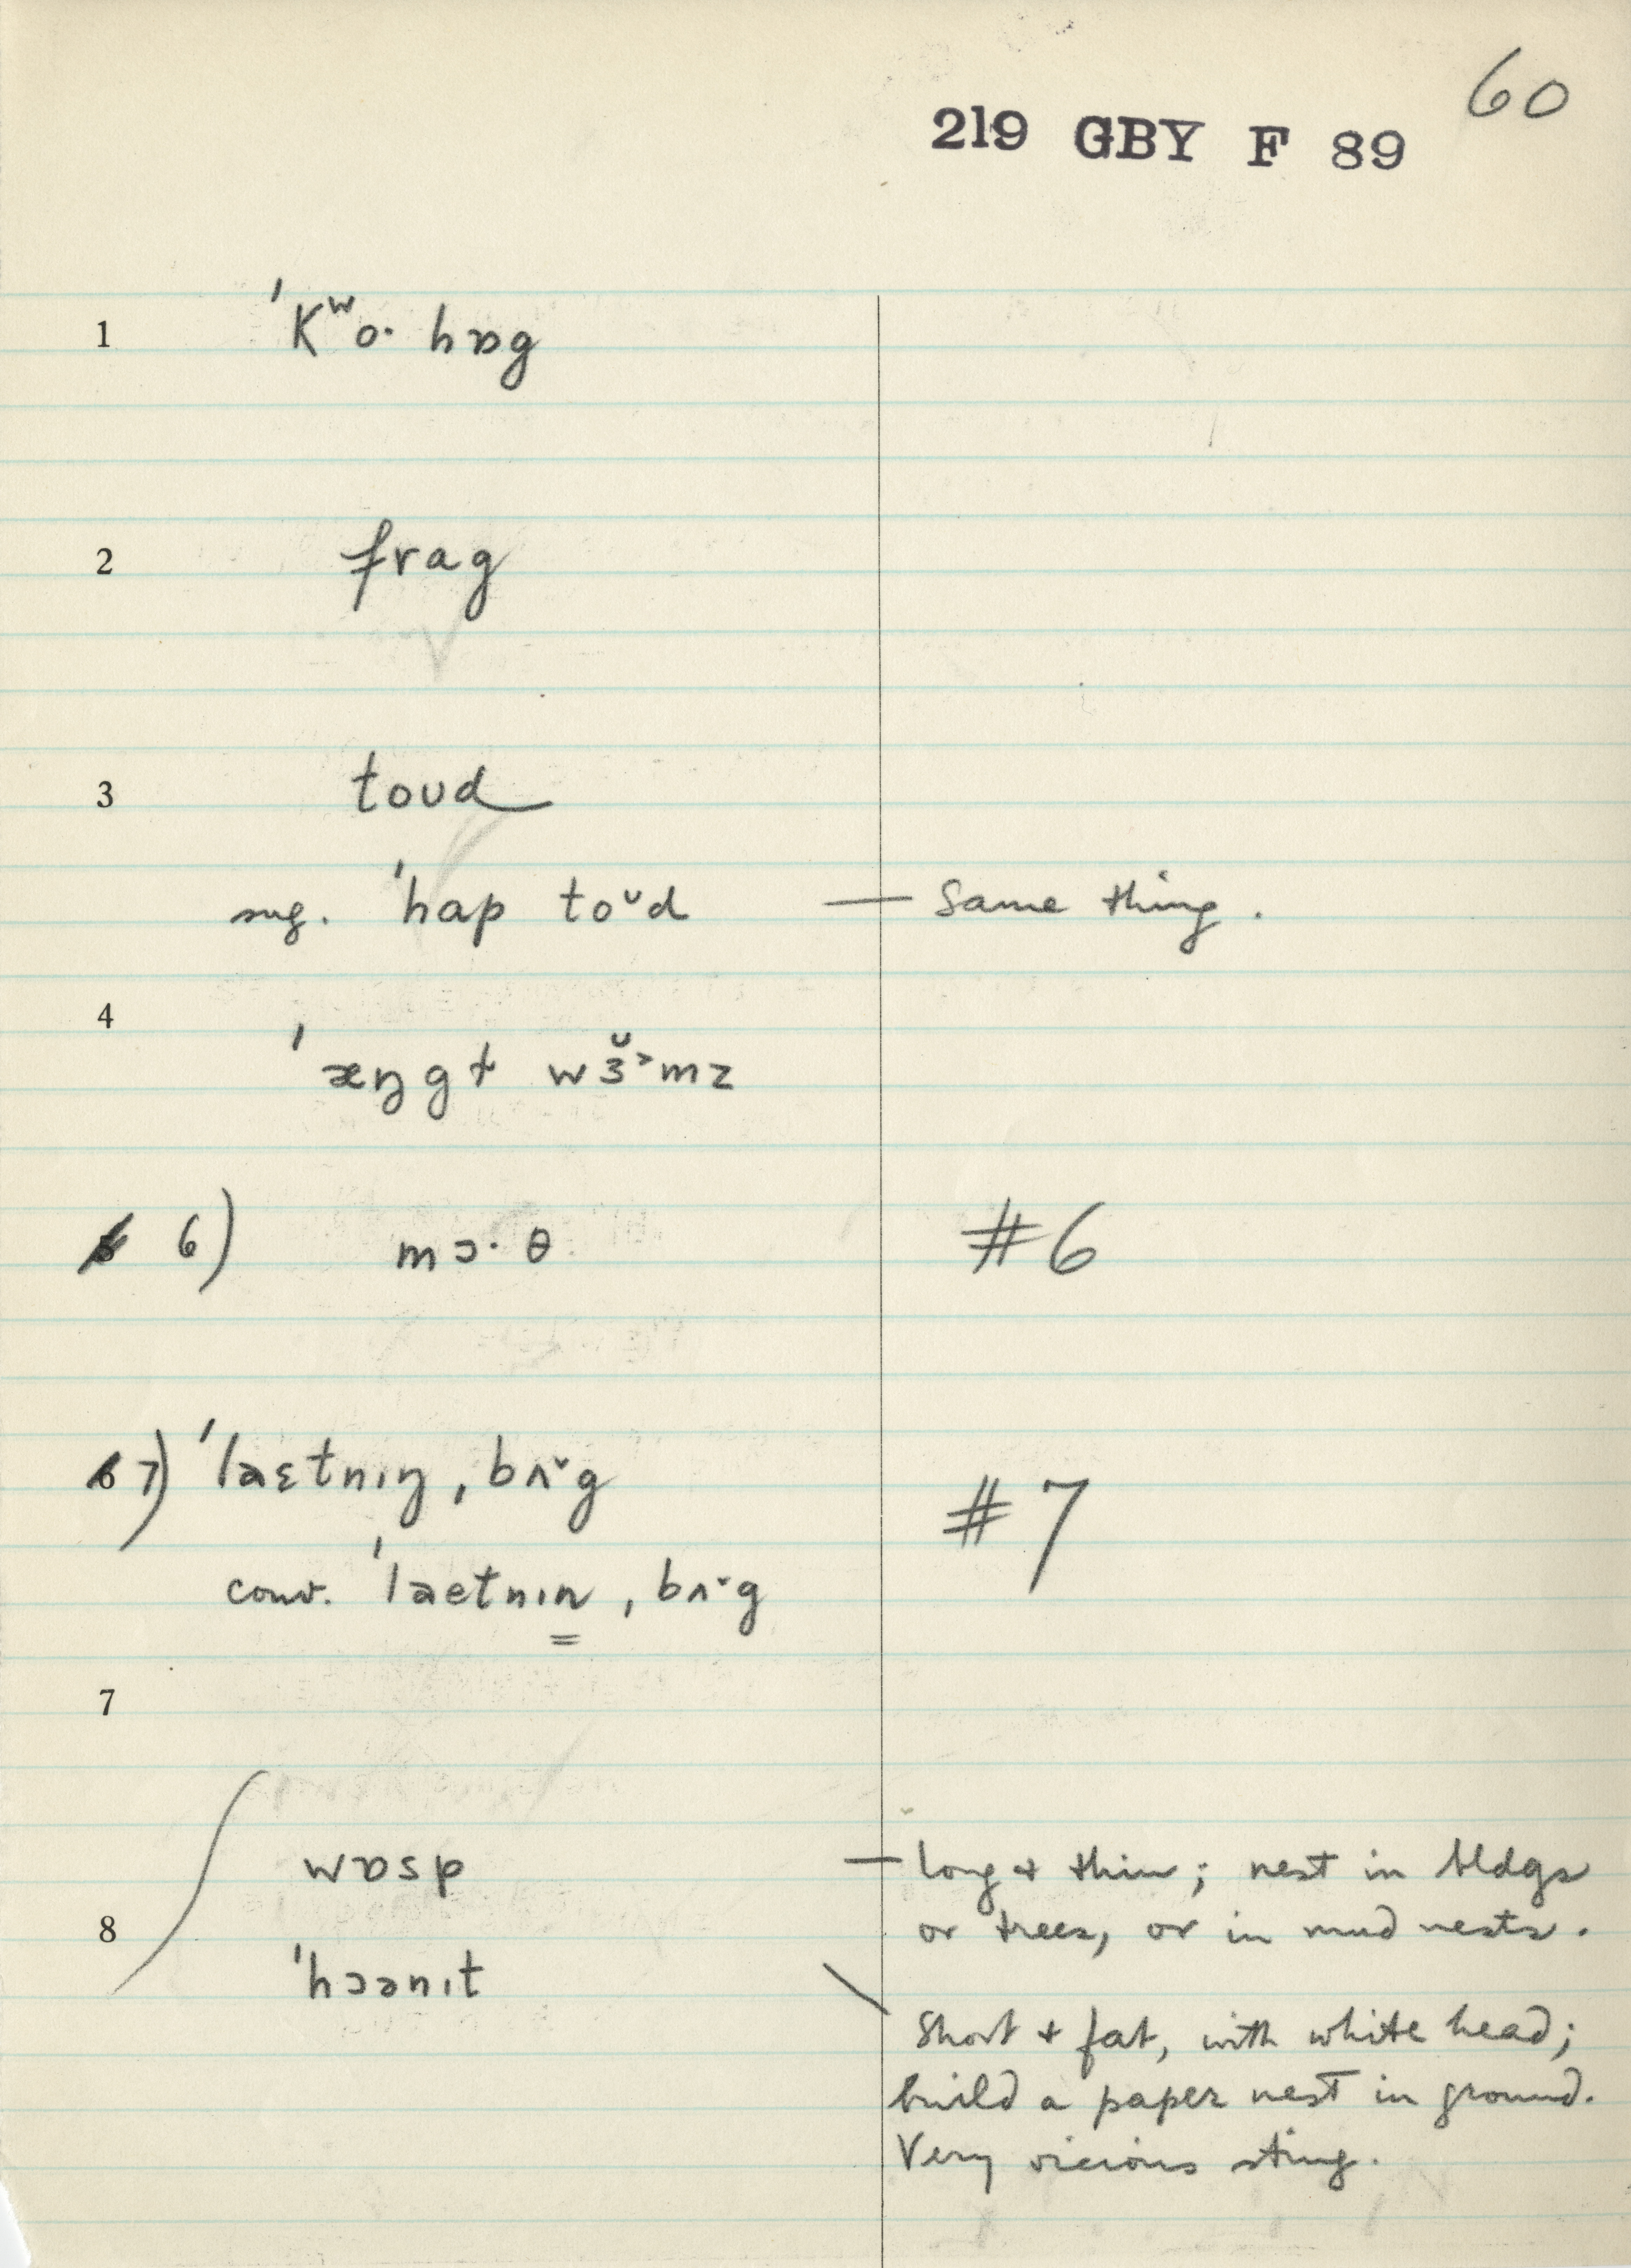 60
219 GBY F 89
1 ˈKʷo· hɒg
2 frag
3 toʊd
sug. ˈhap toᶷd — Same thing.
4 ˈæŋgɫ wɜ̆˃mz
6) mɔ·θ #6
7) ˈlaɛtnɪŋ ˌbʌ˘g #7
conv. ˈlaetnɪn ˌbʌ˘g
7
wɒsp — long + thin; nest in bldgs
8 or trees, or in mud nests.
ˈhɔənɪt \ Short + fat, with white head;
build a paper nest in ground.
Very vicious sting.